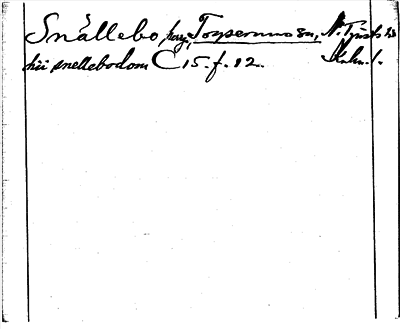 Snällebo hag, Torpserums sn, N. Tjusts hd
hii snellebodom C 15. f. 12. Klm. l.